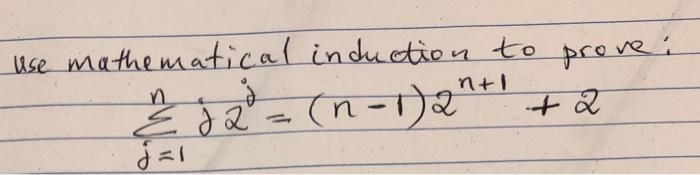 use mathematical induction to prove:
n
∑ j2^j = (n-1)2^{n+1} + 2
j=1